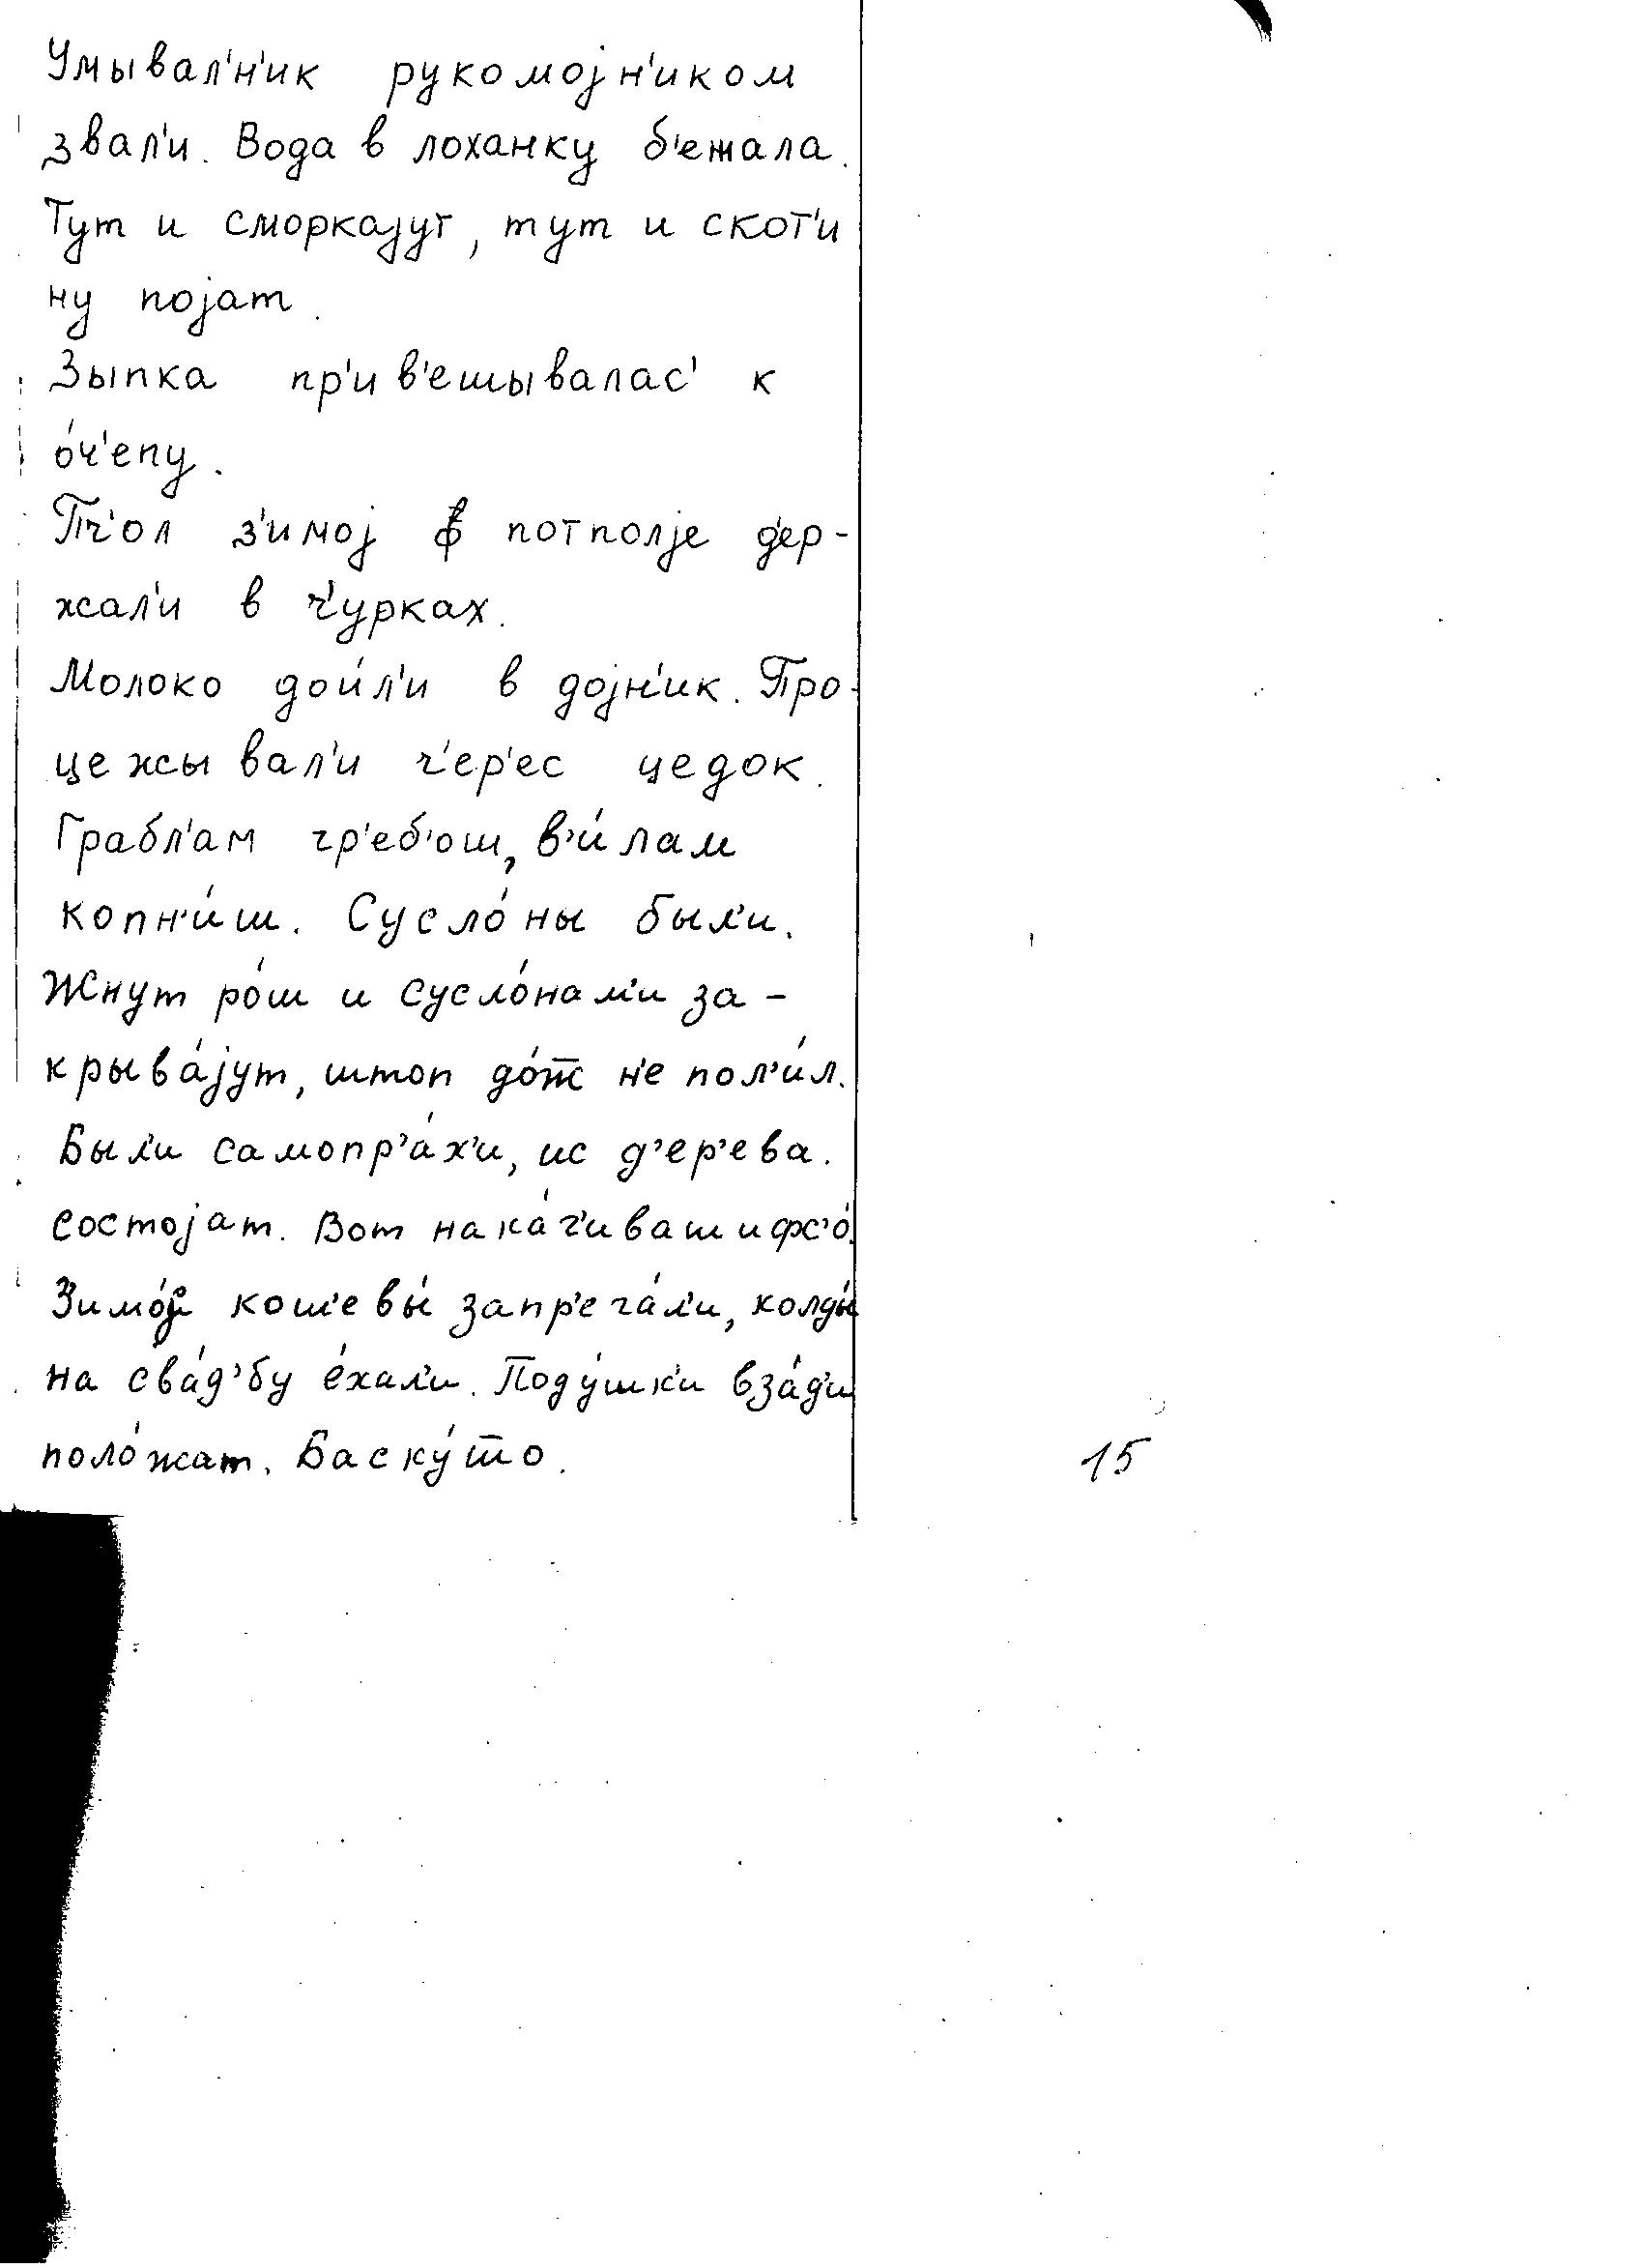 Умывал'н'ик рукомојн'иком
звал'и. Вода в лоханку б'ежала.
Тут и сморкајут, тут и скот'и
ну појат.
Зыпка пр'ив'ешывалас' к
о́ч'епу.
Пч'ол з'имој ф потполје д'ер-
жал'и в ч'урках.
Молоко дои́л'и в дојн'ик. Про-
цежывал'и ч'ер'ес цедок.
Грабл'ам гр'еб'ош, в'и́лам
копн'и́ш. Сусло́ны был'и.
Жнут ро́ш и сусло́нам'и за-
крыва́јут, штоп до́ш н'е пол'и́л.
Был'и самопр'а́х'и, ис д'ер'ева.
состојат. Вот нака́ч'иваш и фс'о́.
З'имо́ј кошевы́ запр'ега́л'и, колды́
на сва́д'бу е́хал'и. Поду́шк'и вза́д'и
поло́жат. Баску́што.
15